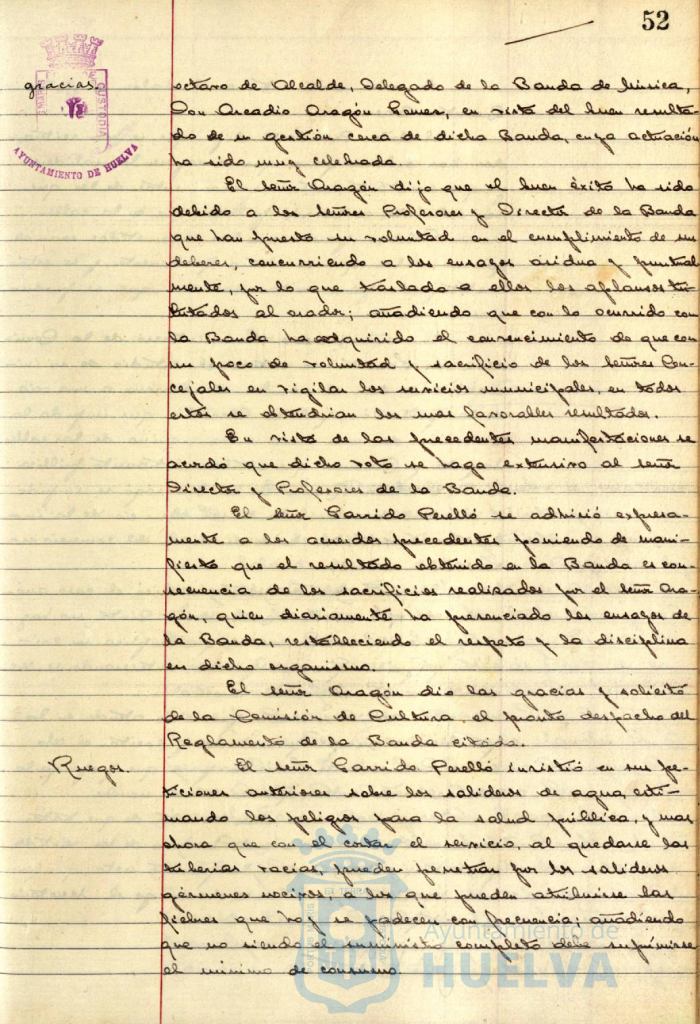 52
gracias.
AYUNTAMIENTO DE HUELVA
CUSTODIA
octavo de Alcalde, Delegado de la Banda de Música,
Don Arcadio Aragón Gomez, en vista del buen resulta-
do de su gestión cerca de dicha Banda, cuya actuación
ha sido muy celebrada.
El señor Aragón dijo que el buen éxito ha sido
debido a los señores Profesores y Director de la Banda
que han puesto su voluntad en el cumplimiento de sus
deberes, concurriendo a los ensayos asidua y puntual-
mente, por lo que traslado a ellos los aplausos tri-
butados al orador; añadiendo que con lo ocurrido con
la Banda ha adquirido el convencimiento de que con
un poco de voluntad y sacrificio de los señores Con-
cejales en vigilar los servicios municipales, en todos
estos se obtendrian los mas favorables resultados.
En vista de las precedentes manifestaciones se
acordó que dicho voto se haga extensivo al señor
Director y Profesores de la Banda.
El señor Garrido Perelló se adhirió expresa-
mente a los acuerdos precedentes poniendo de mani-
fiesto que el resultado obtenido en la Banda es con-
secuencia de los sacrificios realizados por el señor Ara-
gón, quien diariamente ha presenciado los ensayos de
la Banda, restableciendo el respeto y la disciplina
en dicho organismo.
El señor Aragón dio las gracias y solicitó
de la Comisión de Cultura el pronto despacho del
Reglamento de la Banda citada.
Ruegos.
El señor Garrido Perelló insistió en sus pe-
ticiones anteriores sobre los salideros de agua, esti-
mando los peligros para la salud pública, y mas
ahora que con el cortar el servicio, al quedarse las
tuberias vacias, pueden penetrar por los salideros
gérmenes nocivos, a los que pueden atribuirse las
fiebres que hoy se padecen con frecuencia; añadiendo
que no siendo el suministro completo debe suprimirse
el minimo de consumo.
Ayuntamiento de
HUELVA